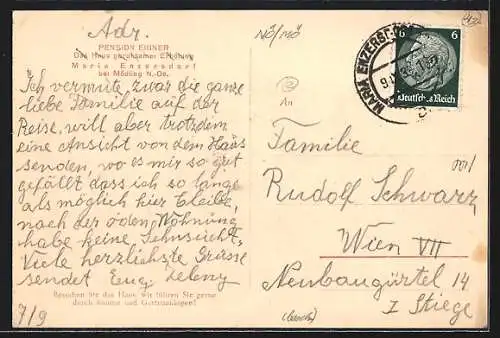 Adr.
PENSION EBNER
Das Haus gepflegter Erholung
Maria Enzersdorf
bei Mödling N.-Oe.
Ich vermute, zwar die ganze
liebe Familie auf der
Reise, will aber trotzdem
eine Ansicht von dem Haus
senden, wo es mir so gut
gefällt dass ich so lange
als möglich hier bleibe,
nach der öden Wohnung
habe keine Sehnsucht.
Viele herzlichste Grüsse
sendet Eug. Zeleny
Besuchen Sie das Haus, wir führen Sie gerne
durch Räume und Gartenanlagen!
7/9
NÖ/NÖ
MARIA ENZERSD
6 6
Deutsches Reich
Familie
Rudolf Schwarz
Wien VII
Neubaugürtel 14
I Stiege